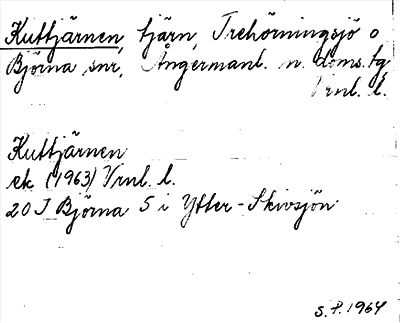 Kuttjärnen, tjärn, Trehörningsjö o
Björna snr, Ångermanl. n. doms. fg,
Vrnl. l.
Kuttjärnen
ek (1963) Vrnl. l.
20 I Björna 5 i Ytter-Skivsjön
S.P. 1964